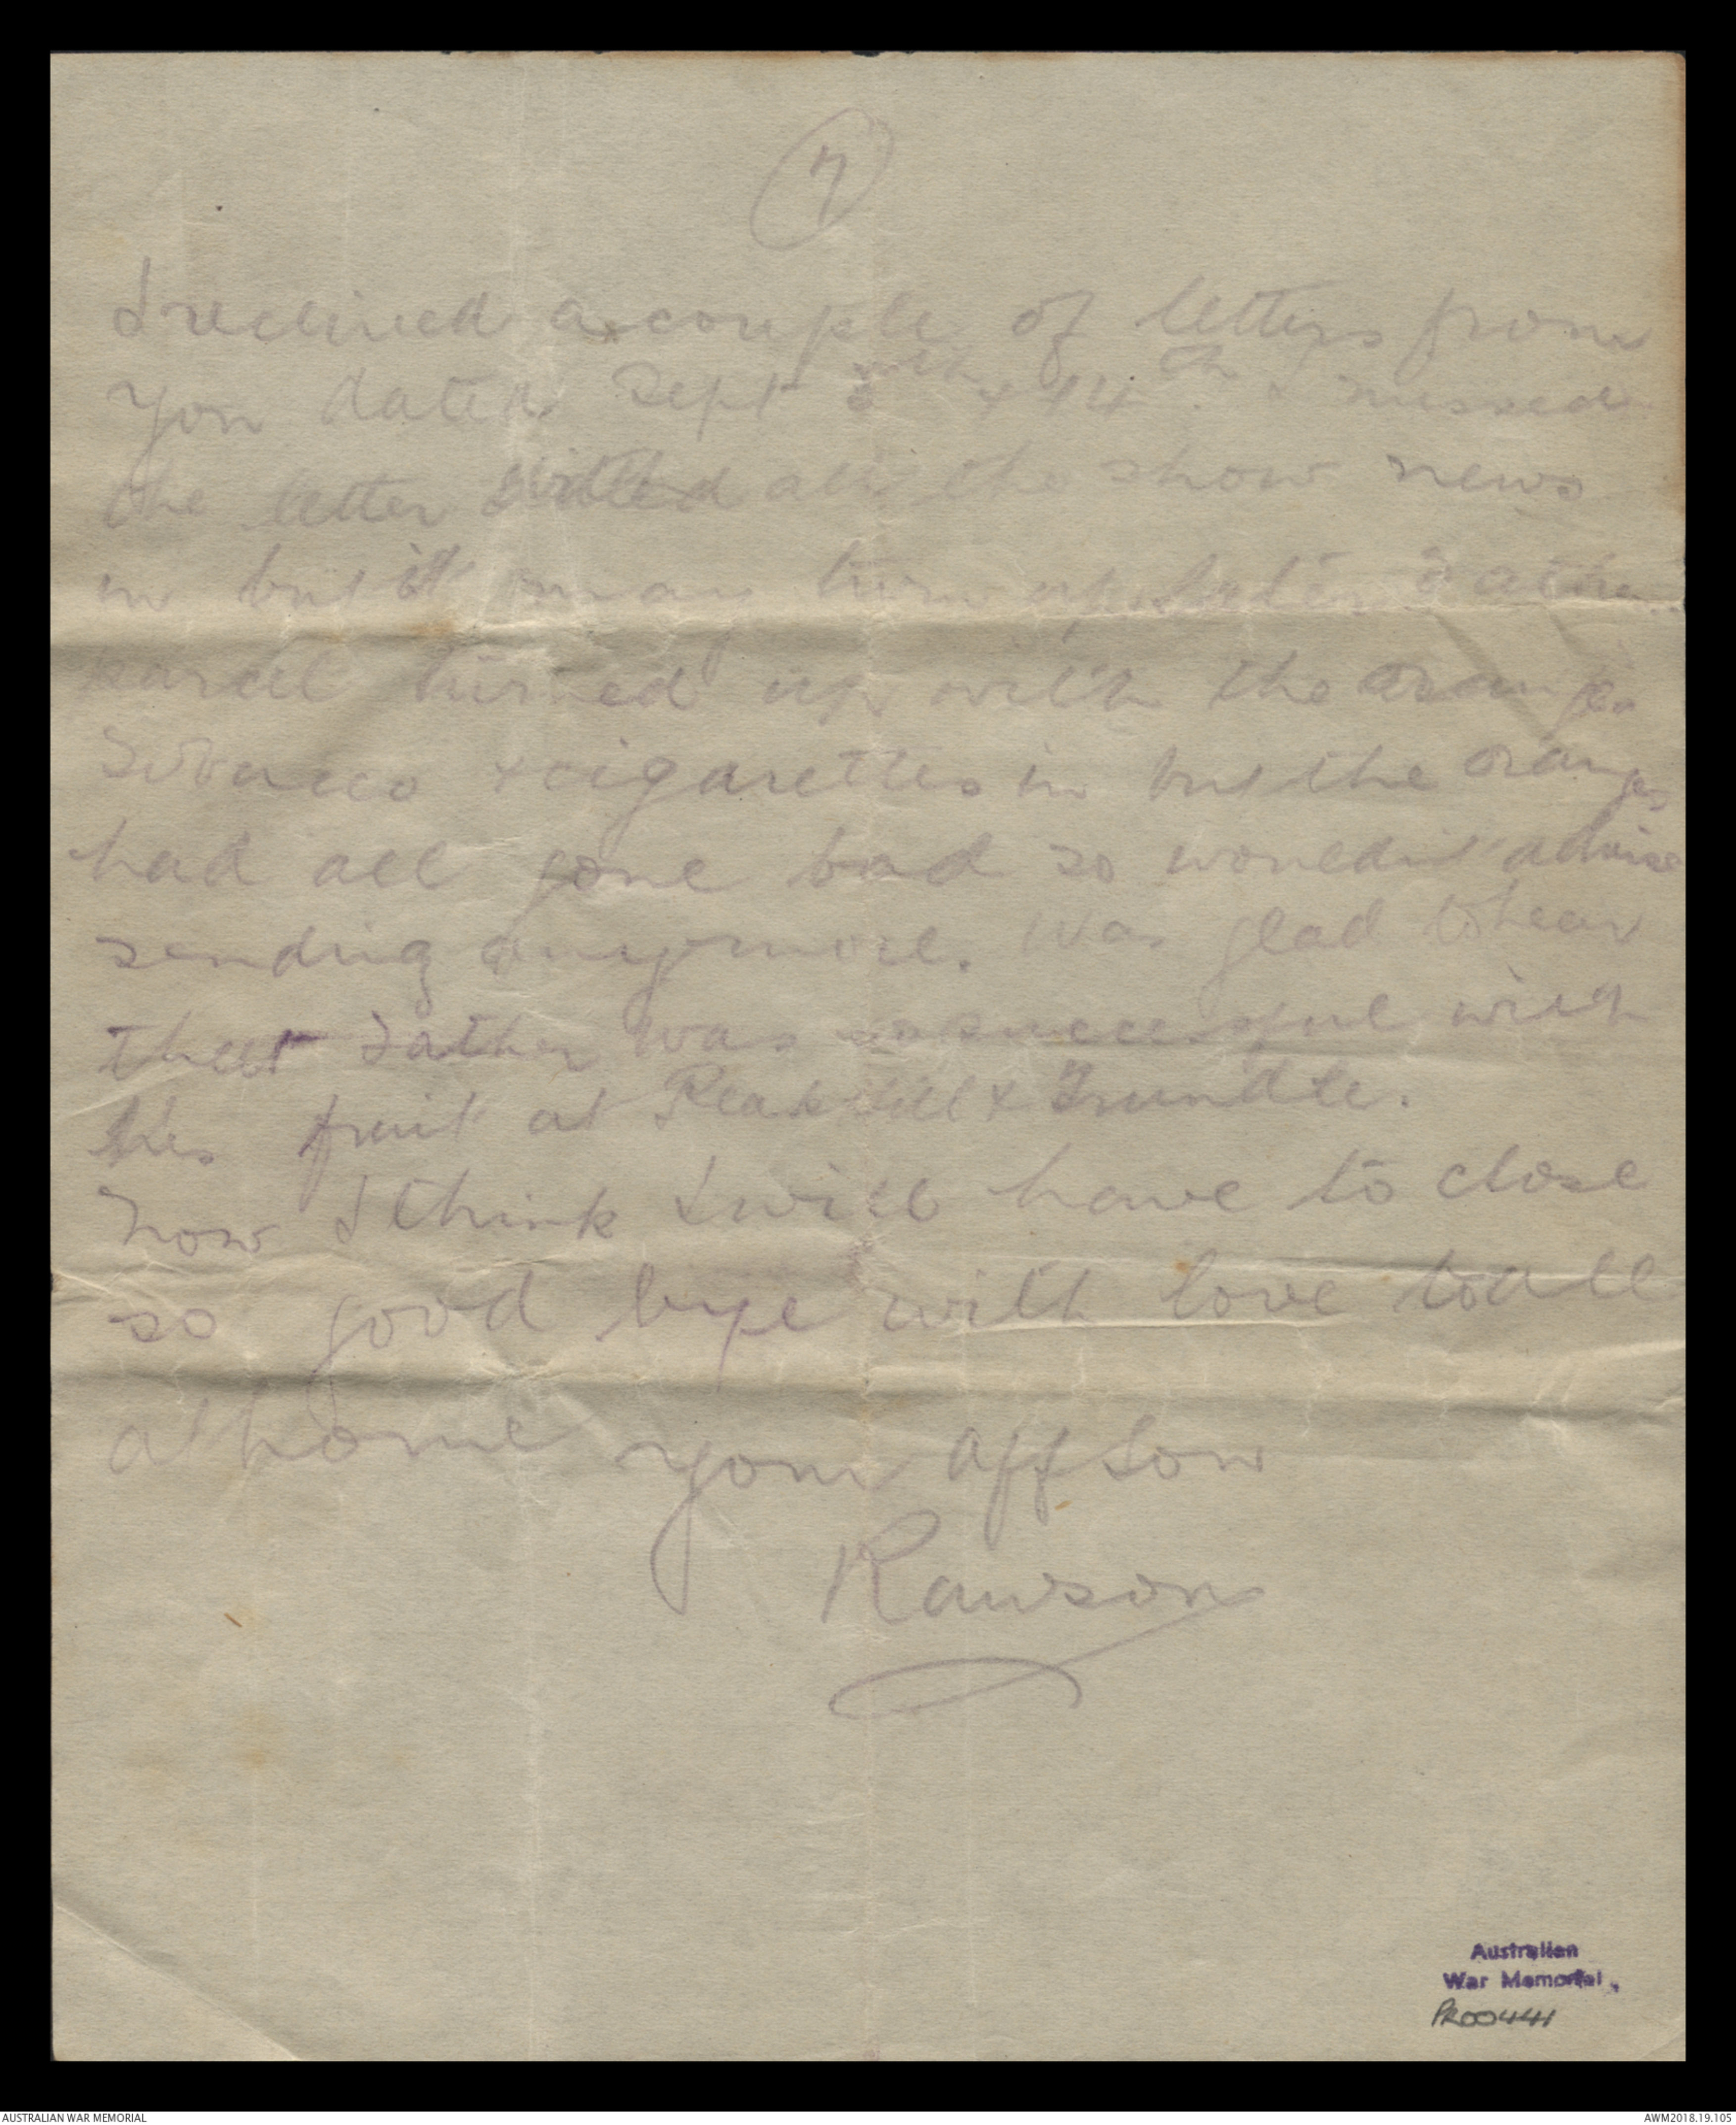 (7)
I received a couple of letters from
you dated Sept & 14th. I missed
the letter with all the show news
in but it may turn up later. Father
parcel turned up with the oranges
Tobacco & cigarettes in but the oranges
had all gone bad so wouldn't advise
sending anymore. Was glad to hear
that Father was so successful with
his fruit at Peak Hill & Trundle.
Now I think I will have to close
so good bye with love to all
at home your aff son
Rawson
Australian
War Memorial
PR00441
AUSTRALIAN WAR MEMORIAL
AWM2018.19.105